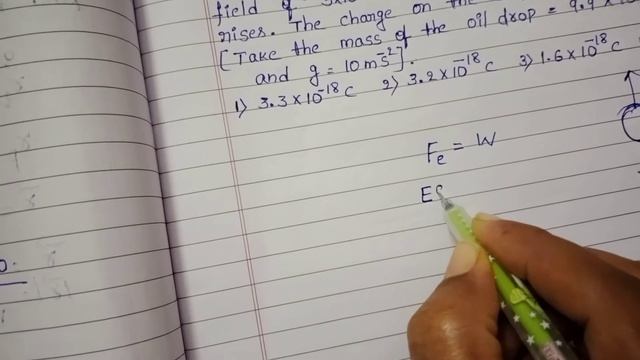 field of
rises. The change on the
[Take the mass of the oil drop = 9.9 x
and g = 10 ms⁻²].
1) 3.3 x 10⁻¹⁸ C 2) 3.2 x 10⁻¹⁸ C 3) 1.6 x 10⁻¹⁸ C
Fe = W
E